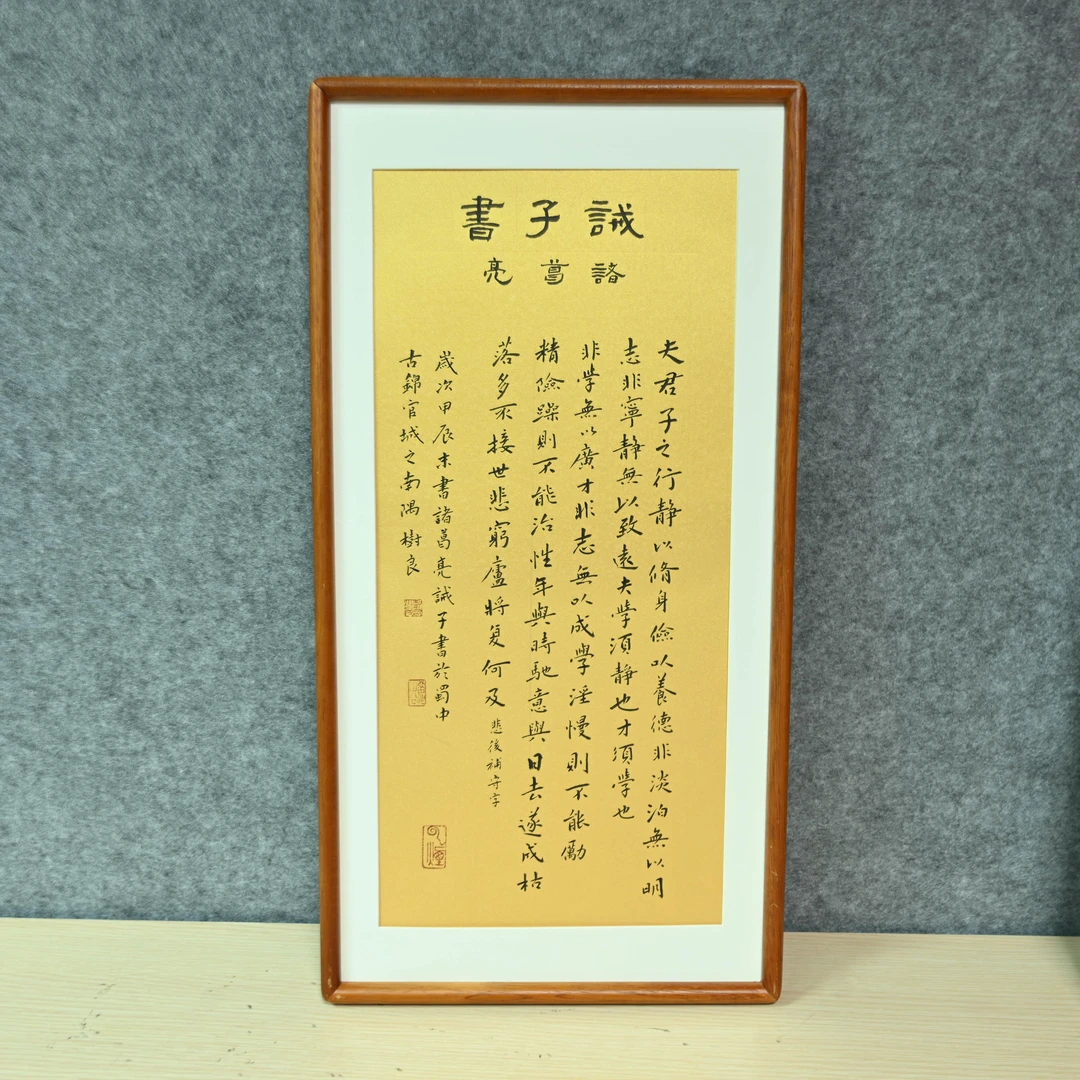 誡子書
諸葛亮
夫君子之行静以脩身儉以養德非淡泊無以明
志非寧静無以致遠夫學須静也才須學也
非學無以廣才非志無以成學淫慢則不能勵
精險躁則不能治性年與時馳意與日去遂成枯
落多不接世悲窮廬將复何及 悲後補守字
歲次甲辰末書諸葛亮誡子書於蜀中
古錦官城之南隅樹良